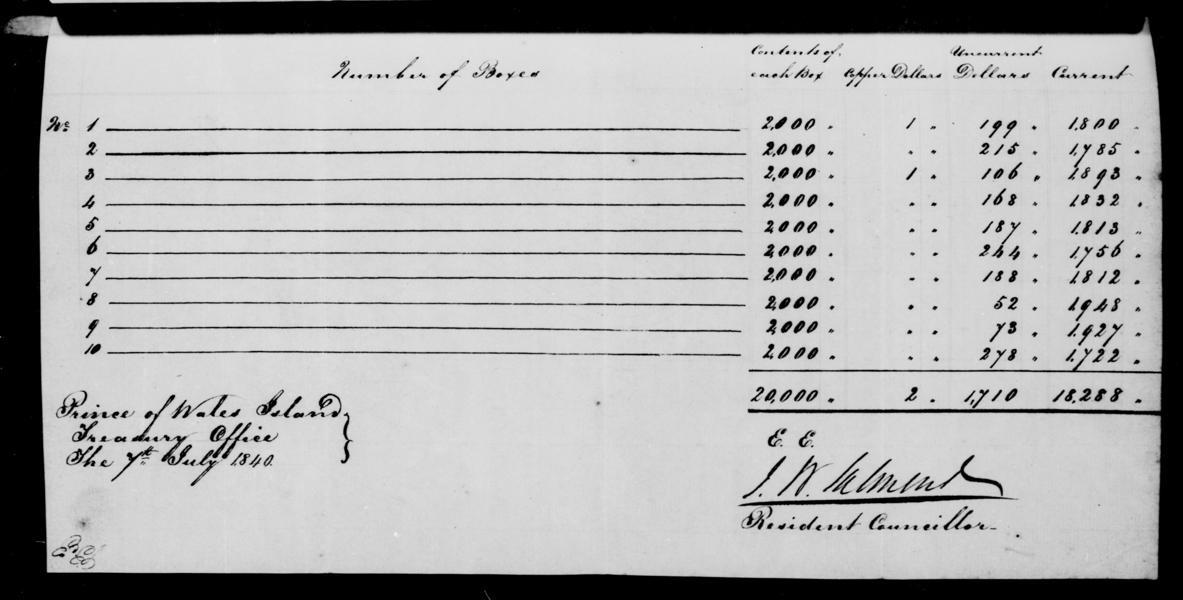 Number of Boxes Contents of each Box Copper Dollars Uncurrent Dollars Current
No. 1 2,000 " 1 " 199 " 1,800 "
2 2,000 " " " 215 " 1,785 "
3 2,000 " 1 " 106 " 1,893 "
4 2,000 " " " 168 " 1,832 "
5 2,000 " " " 187 " 1,813 "
6 2,000 " " " 244 " 1,756 "
7 2,000 " " " 188 " 1,812 "
8 2,000 " " " 52 " 1,948 "
9 2,000 " " " 73 " 1,927 "
10 2,000 " " " 278 " 1,722 "
20,000 " 2 " 1,710 18,288 "
Prince of Wales Island
Treasury Office
The 7th July 1840.
E. E.
J. W. Salmond
Resident Councillor